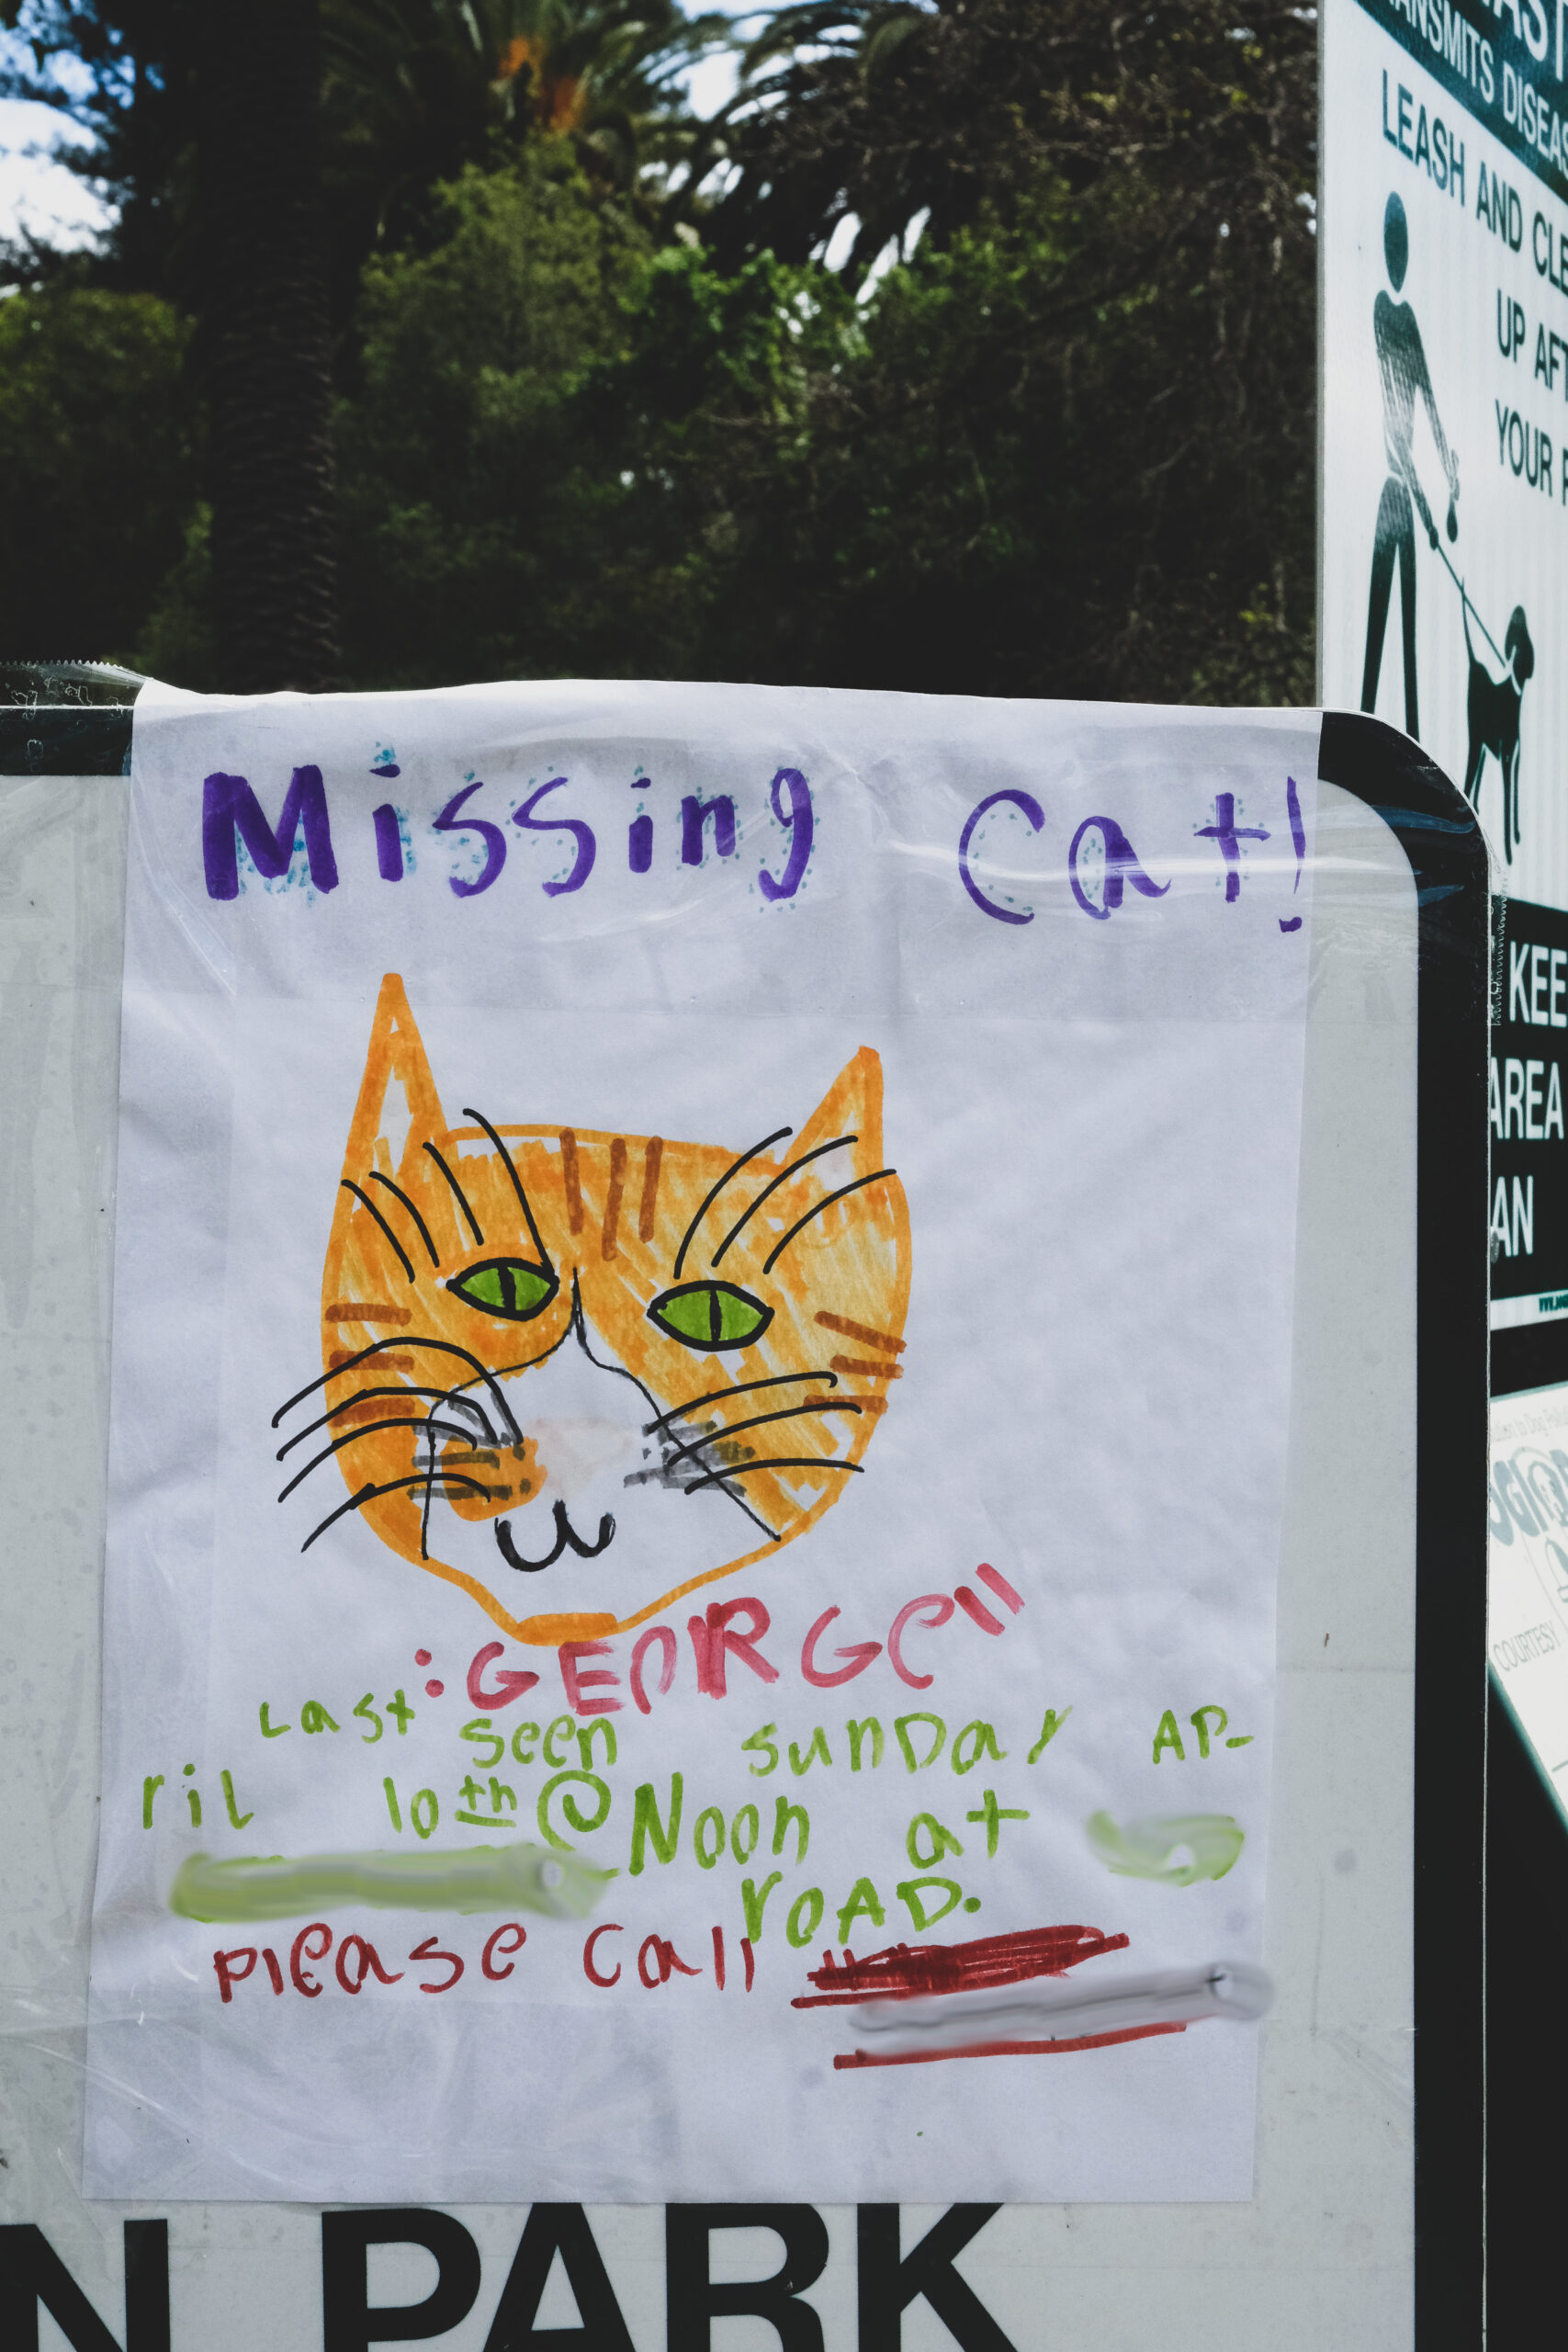 Missing Cat!
:GEORGe"
Last seen sunDay AP-
ril 10th @ Noon at
roAD.
Please call
N PARK
RANSMITS DISEAS
LEASH AND CLE
UP AFT
YOUR P
KEE
AREA
AN
COURTESY